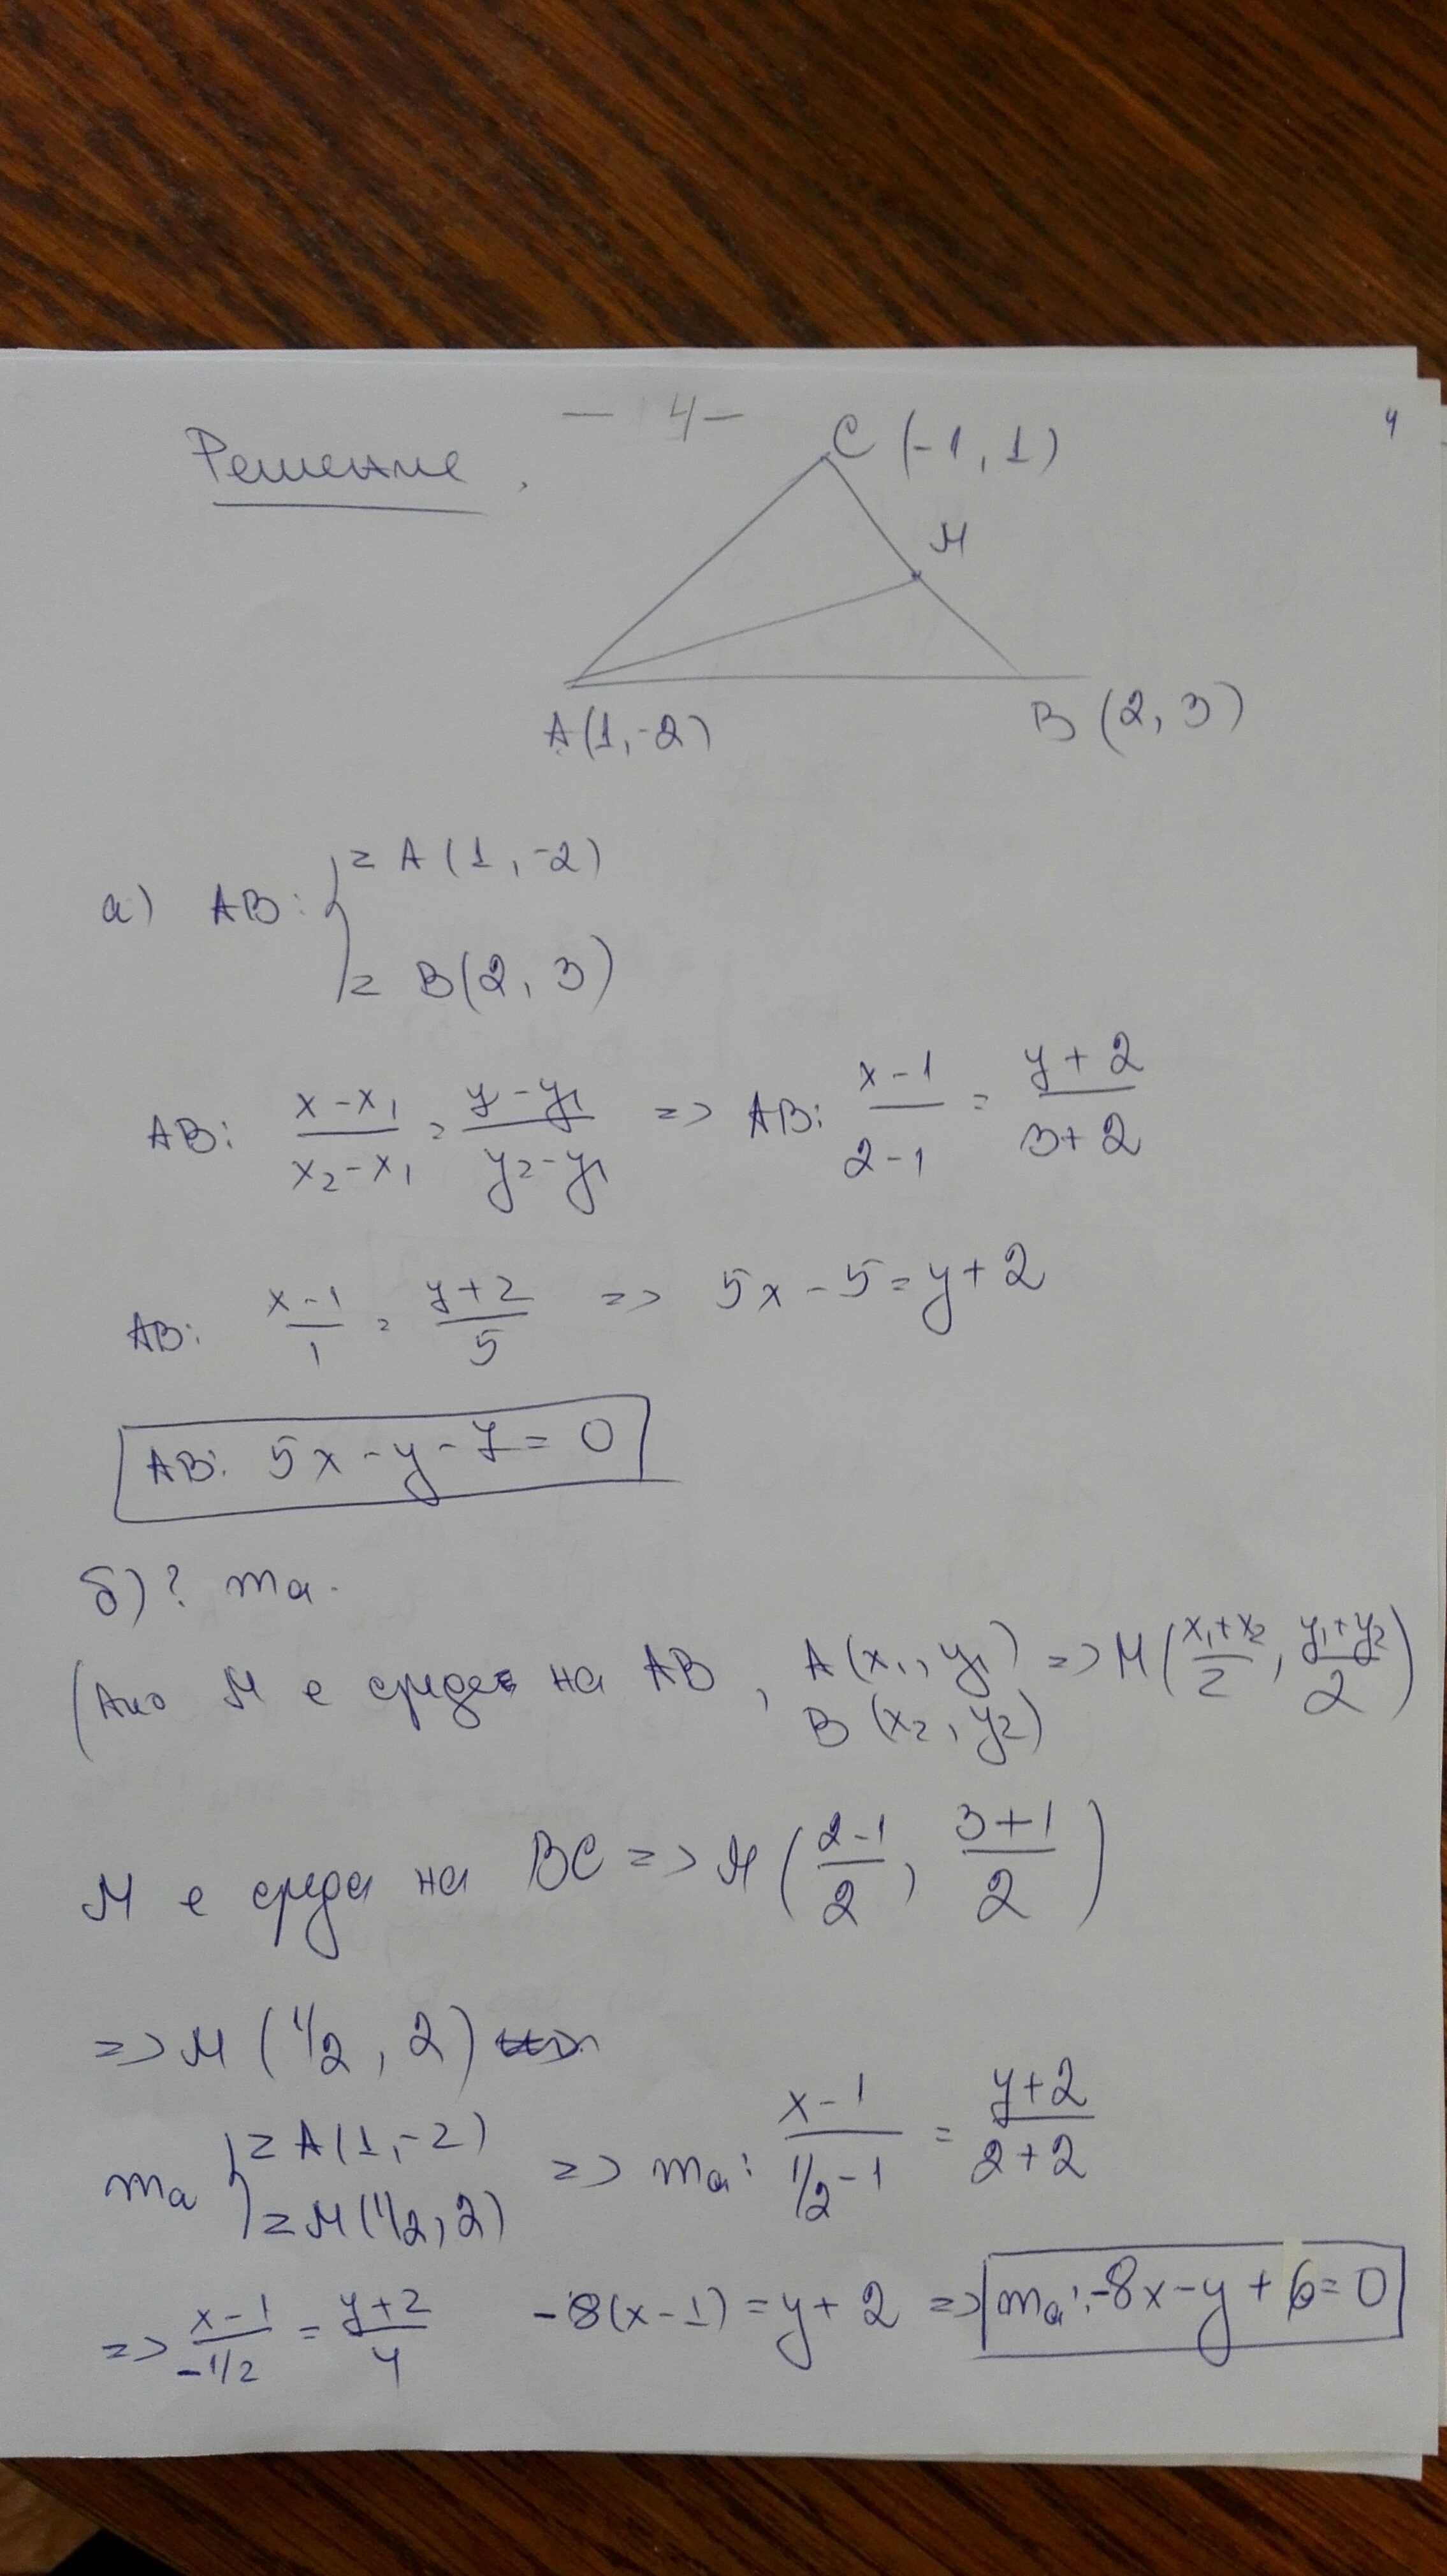 — 4 —
4
Решение.
C (-1, 1)
M
A(1,-2)
B (2, 3)
а) AB: { z A(1, -2)
z B(2, 3)
AB: (x - x₁)/(x₂ - x₁) = (y - y₁)/(y₂ - y₁) => AB: (x - 1)/(2 - 1) = (y + 2)/(3 + 2)
AB: (x - 1)/1 = (y + 2)/5 => 5x - 5 = y + 2
AB: 5x - y - 7 = 0
б) ? mₐ.
(Ако M е среда на AB, A(x₁, y₁) => M((x₁+x₂)/2, (y₁+y₂)/2)
B(x₂, y₂)
M е среда на BC => M((2-1)/2, (3+1)/2)
=> M (1/2, 2)
mₐ { z A(1,-2) => mₐ: (x - 1)/(1/2 - 1) = (y + 2)/(2 + 2)
z M(1/2, 2)
=> (x - 1)/(-1/2) = (y + 2)/4 -8(x - 1) = y + 2 => mₐ: -8x - y + 6 = 0